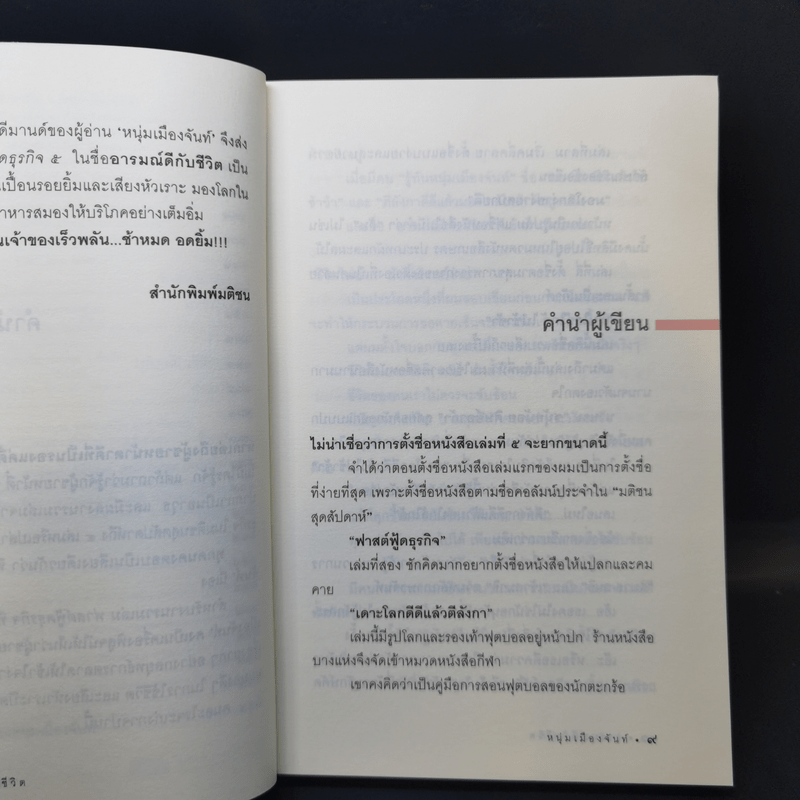 ดีมานด์ของผู้อ่าน ‘หนุ่มเมืองจันท์’ จึงส่ง
ธุรกิจ ๕ ในชื่ออารมณ์ดีกับชีวิต เป็น
เปื้อนรอยยิ้มและเสียงหัวเราะ มองโลกใน
าหารสมองให้บริโภคอย่างเต็มอิ่ม
นเจ้าของเร็วพลัน...ช้าหมด อดยิ้ม!!!
สำนักพิมพ์มติชน
ชีวิต
คำนำผู้เขียน
ไม่น่าเชื่อว่าการตั้งชื่อหนังสือเล่มที่ ๕ จะยากขนาดนี้
จำได้ว่าตอนตั้งชื่อหนังสือเล่มแรกของผมเป็นการตั้งชื่อ
ที่ง่ายที่สุด เพราะตั้งชื่อหนังสือตามชื่อคอลัมน์ประจำใน “มติชน
สุดสัปดาห์”
“ฟาสต์ฟู้ดธุรกิจ”
เล่มที่สอง ชักคิดมากอยากตั้งชื่อหนังสือให้แปลกและคม
คาย
“เดาะโลกดีดีแล้วตีลังกา”
เล่มนี้มีรูปโลกและรองเท้าฟุตบอลอยู่หน้าปก ร้านหนังสือ
บางแห่งจึงจัดเข้าหมวดหนังสือกีฬา
เขาคงคิดว่าเป็นคู่มือการสอนฟุตบอลของนักตะกร้อ
หนุ่มเมืองจันท์ • ๙